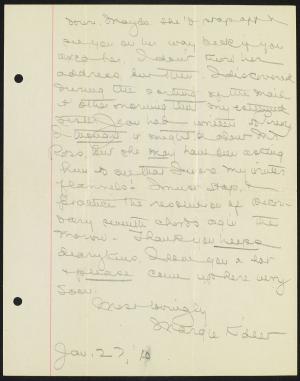 town. Maybe she'd stop off &
see you on her way back if you
asked her. I don't know her
address but then I discovered
during the sorting of the mail
the other morning that my
sister Jean had written
I thought it might be about Mr.
Ross, but she may have been asking
him to see that I wore my winter
flannels! I must stop, &
practice the resolution of secon-
dary seventh chords ag'in the
morrow. Thank you heaps
dearykins, I love you a lot
& please come up here very
soon.
Most lovingly
Margie
Jan. 27,